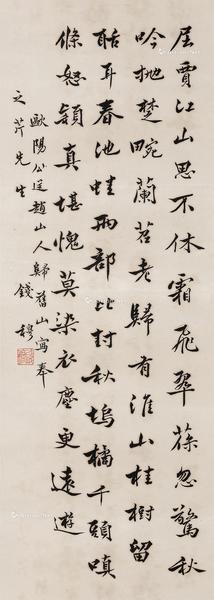 屈賈江山思不休霜飛翠葆忽驚秋
吟拋楚畹蘭苕老歸有淮山桂樹留
聒耳春池蛙兩部比封秋塢橘千頭嗔
條怒穎真堪愧莫染衣塵更遠遊
歐陽公送趙山人歸舊山寫奉
之芹先生 錢穆